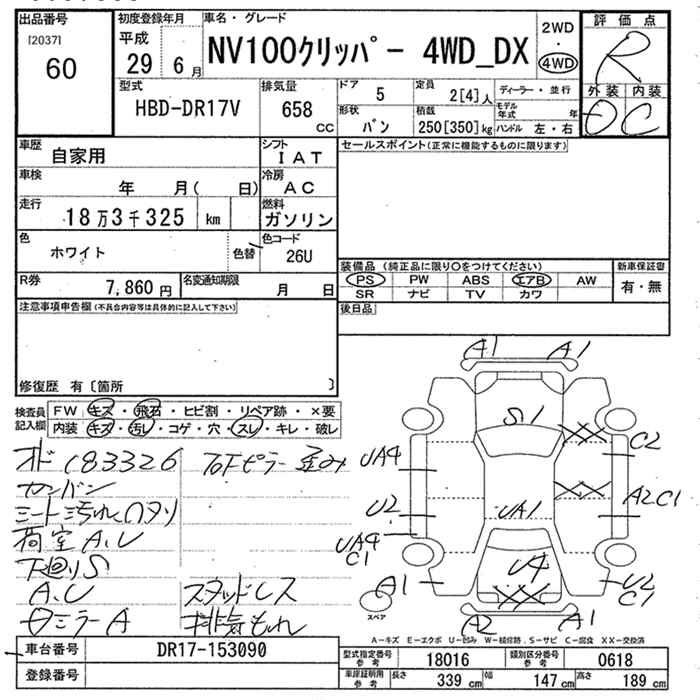 出品番号
[2037]
60
初度登録年月
平成
29 6 月
車名・グレード
NV100クリッパー 4WD_DX
2WD
・
4WD
評価点
R
外装 内装
D C
型式
HBD-DR17V
排気量
658 cc
ドア 5
形状 バン
定員 2[4]人
積載 250[350]kg
ディーラー・並行
モデル年式 年
ハンドル 左・右
車歴 自家用
シフト IAT
車検 年 月( 日)
冷房 AC
走行 18万3千325 km
燃料 ガソリン
色 ホワイト 色替
色コード 26U
R券 7,860円
名変通知期限 月 日
セールスポイント(正常に機能するものに限ります)
装備品 (純正品に限り○をつけてください)
新車保証書
PS PW ABS エアB AW
有・無
SR ナビ TV カワ
後日品
注意事項申告欄(不具合内容等は具体的に記入して下さい)
修復歴 有〔箇所 〕
検査員記入欄
FW キズ・飛石・ヒビ割・リペア跡・×要
内装 キズ・汚レ・コゲ・穴・スレ・キレ・破レ
オド183326
カンバン
シート汚れ
荷室A.U
下廻りS
A.U
スタッドレス
ミラーA
排気もれ
A1 A1
S1
XX C2
UA4
XX A2C1
U2
UA1
UA4
C1
U4
A1
XX
U2
C1
A2 A1
スペア
A-キズ E-エクボ U-凹み W-補修跡 S-サビ C-腐食 XX-交換済
車台番号 DR17-153090
登録番号
型式指定番号 参考 18016
類別区分番号 参考 0618
車庫証明用 参考 長さ 339 cm 幅 147 cm 高さ 189 cm